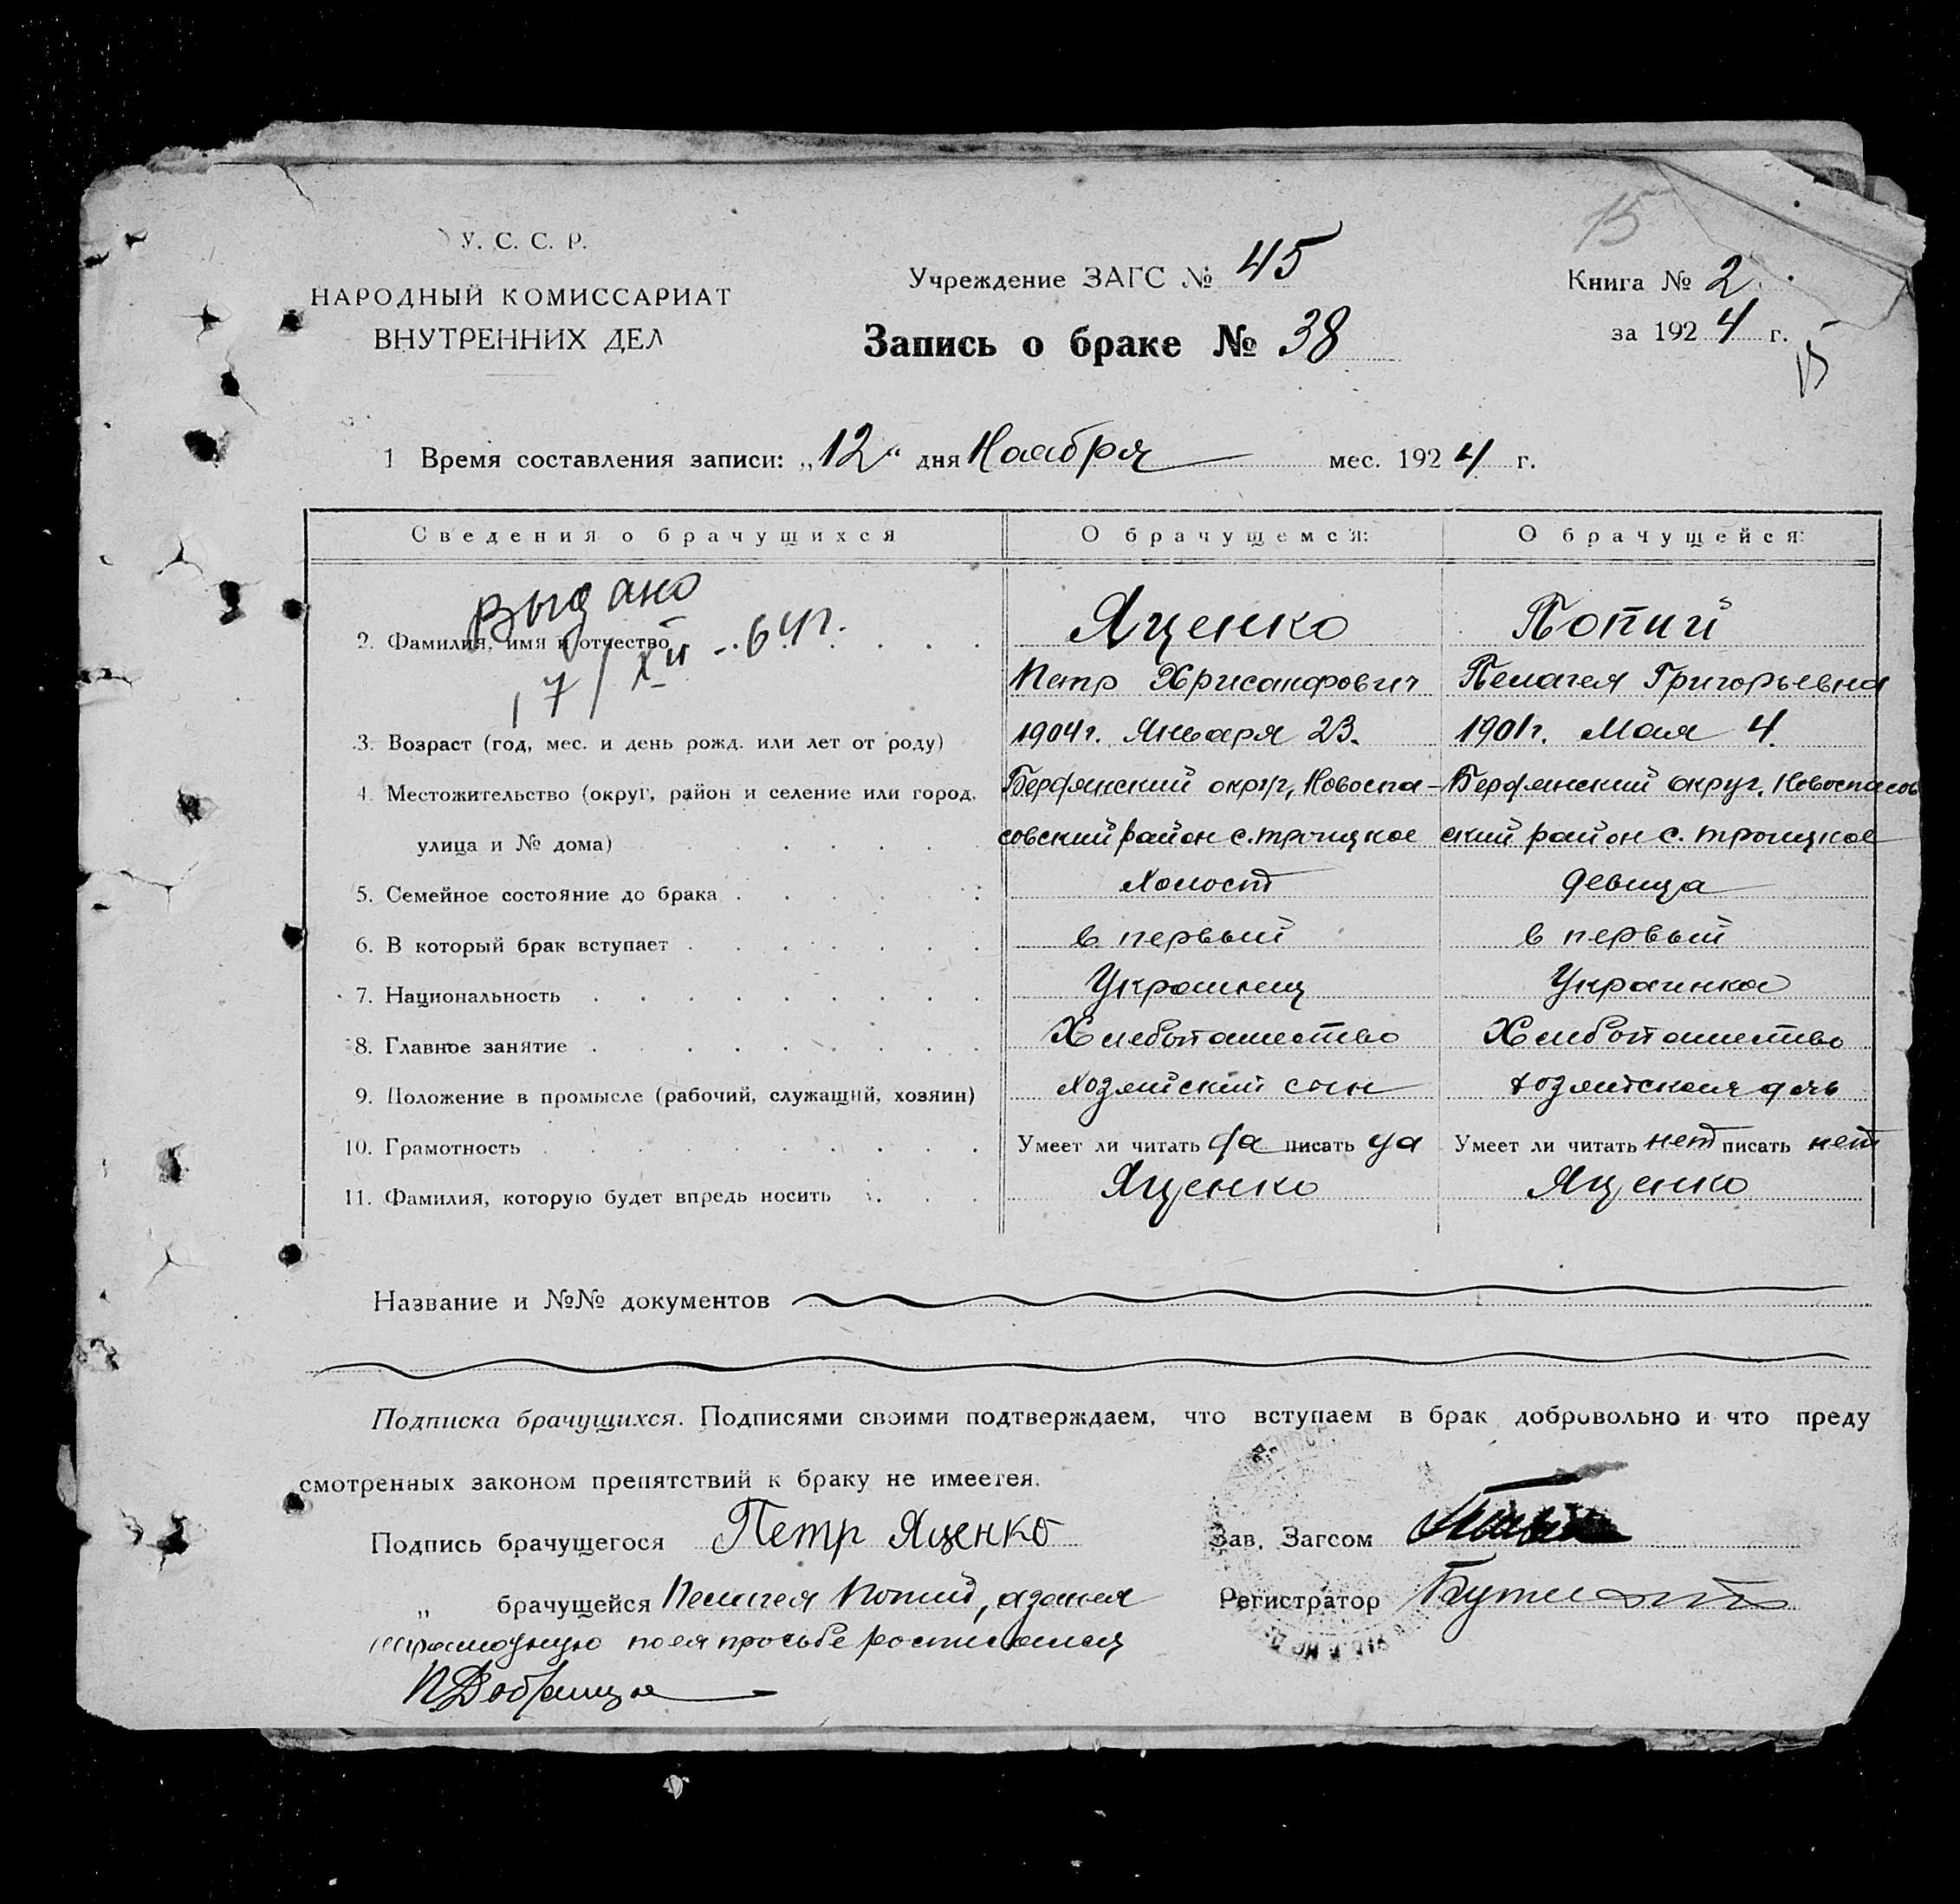 15
У. С. С. Р.
НАРОДНЫЙ КОМИССАРИАТ
ВНУТРЕННИХ ДЕЛ
Учреждение ЗАГС № 45
Запись о браке № 38
Книга № 2
за 1924 г.
15
1 Время составления записи: „12“ дня Ноября мес. 1924 г.
Сведения о брачущихся О брачущемся: О брачущейся:
Выдано
17/XII - 64г.
2. Фамилия, имя и отчество . . . Яценко Попий
Петр Хрисанфович Пелагея Григорьевна
3. Возраст (год, мес. и день рожд. или лет от роду) 1904г. Января 23. 1901г. Мая 4.
4. Местожительство (округ, район и селение или город, Бердянский округ, Новоспа- Бердянский округ, Новоспасов
улица и № дома) . . . . совский район с. троицкое ский район с. троицкое
5. Семейное состояние до брака . . . . . : Холост девица
6. В который брак вступает . . . . . . . в первый в первый
7. Национальность . . . . . . . . . Украинец Украинка
8. Главное занятие . . . . . . . . . Хлебопашество Хлебопашество
9. Положение в промысле (рабочий, служащий, хозяин) хозяйский сын хозяйская дочь
10. Грамотность . . . . . . . . . . Умеет ли читать да писать да Умеет ли читать нет писать нет
11. Фамилия, которую будет впредь носить . . . Яценко Яценко
Название и №№ документов
Подписка брачущихся. Подписями своими подтверждаем, что вступаем в брак добровольно и что преду
смотренных законом препятствий к браку не имеется.
Подпись брачущегося Петр Яценко
Зав. Загсом
„ брачущейся Пелагея Попий, а за нея
Регистратор
неграмотную по ея просьбе росписался